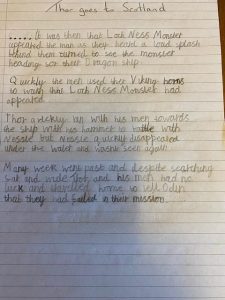 Thor goes to Scotland
..... It was then that Loch Ness Monster
appeared the man as they heard a loud splash
behind them turned to see the monster
heading for their Dragon ship
Quickly the men used their Viking horns
to warn that Loch Ness Monster had
appeared
Thor quickly ran with his men towards
the ship with his hammer to battle with
Nessie but nessie quickly disappeared
under the water and wasn't seen again.
Many week went past and despite searching
far and wide Thor and his men had no
luck and travelled home to tell Odin
that they had failed in their mission